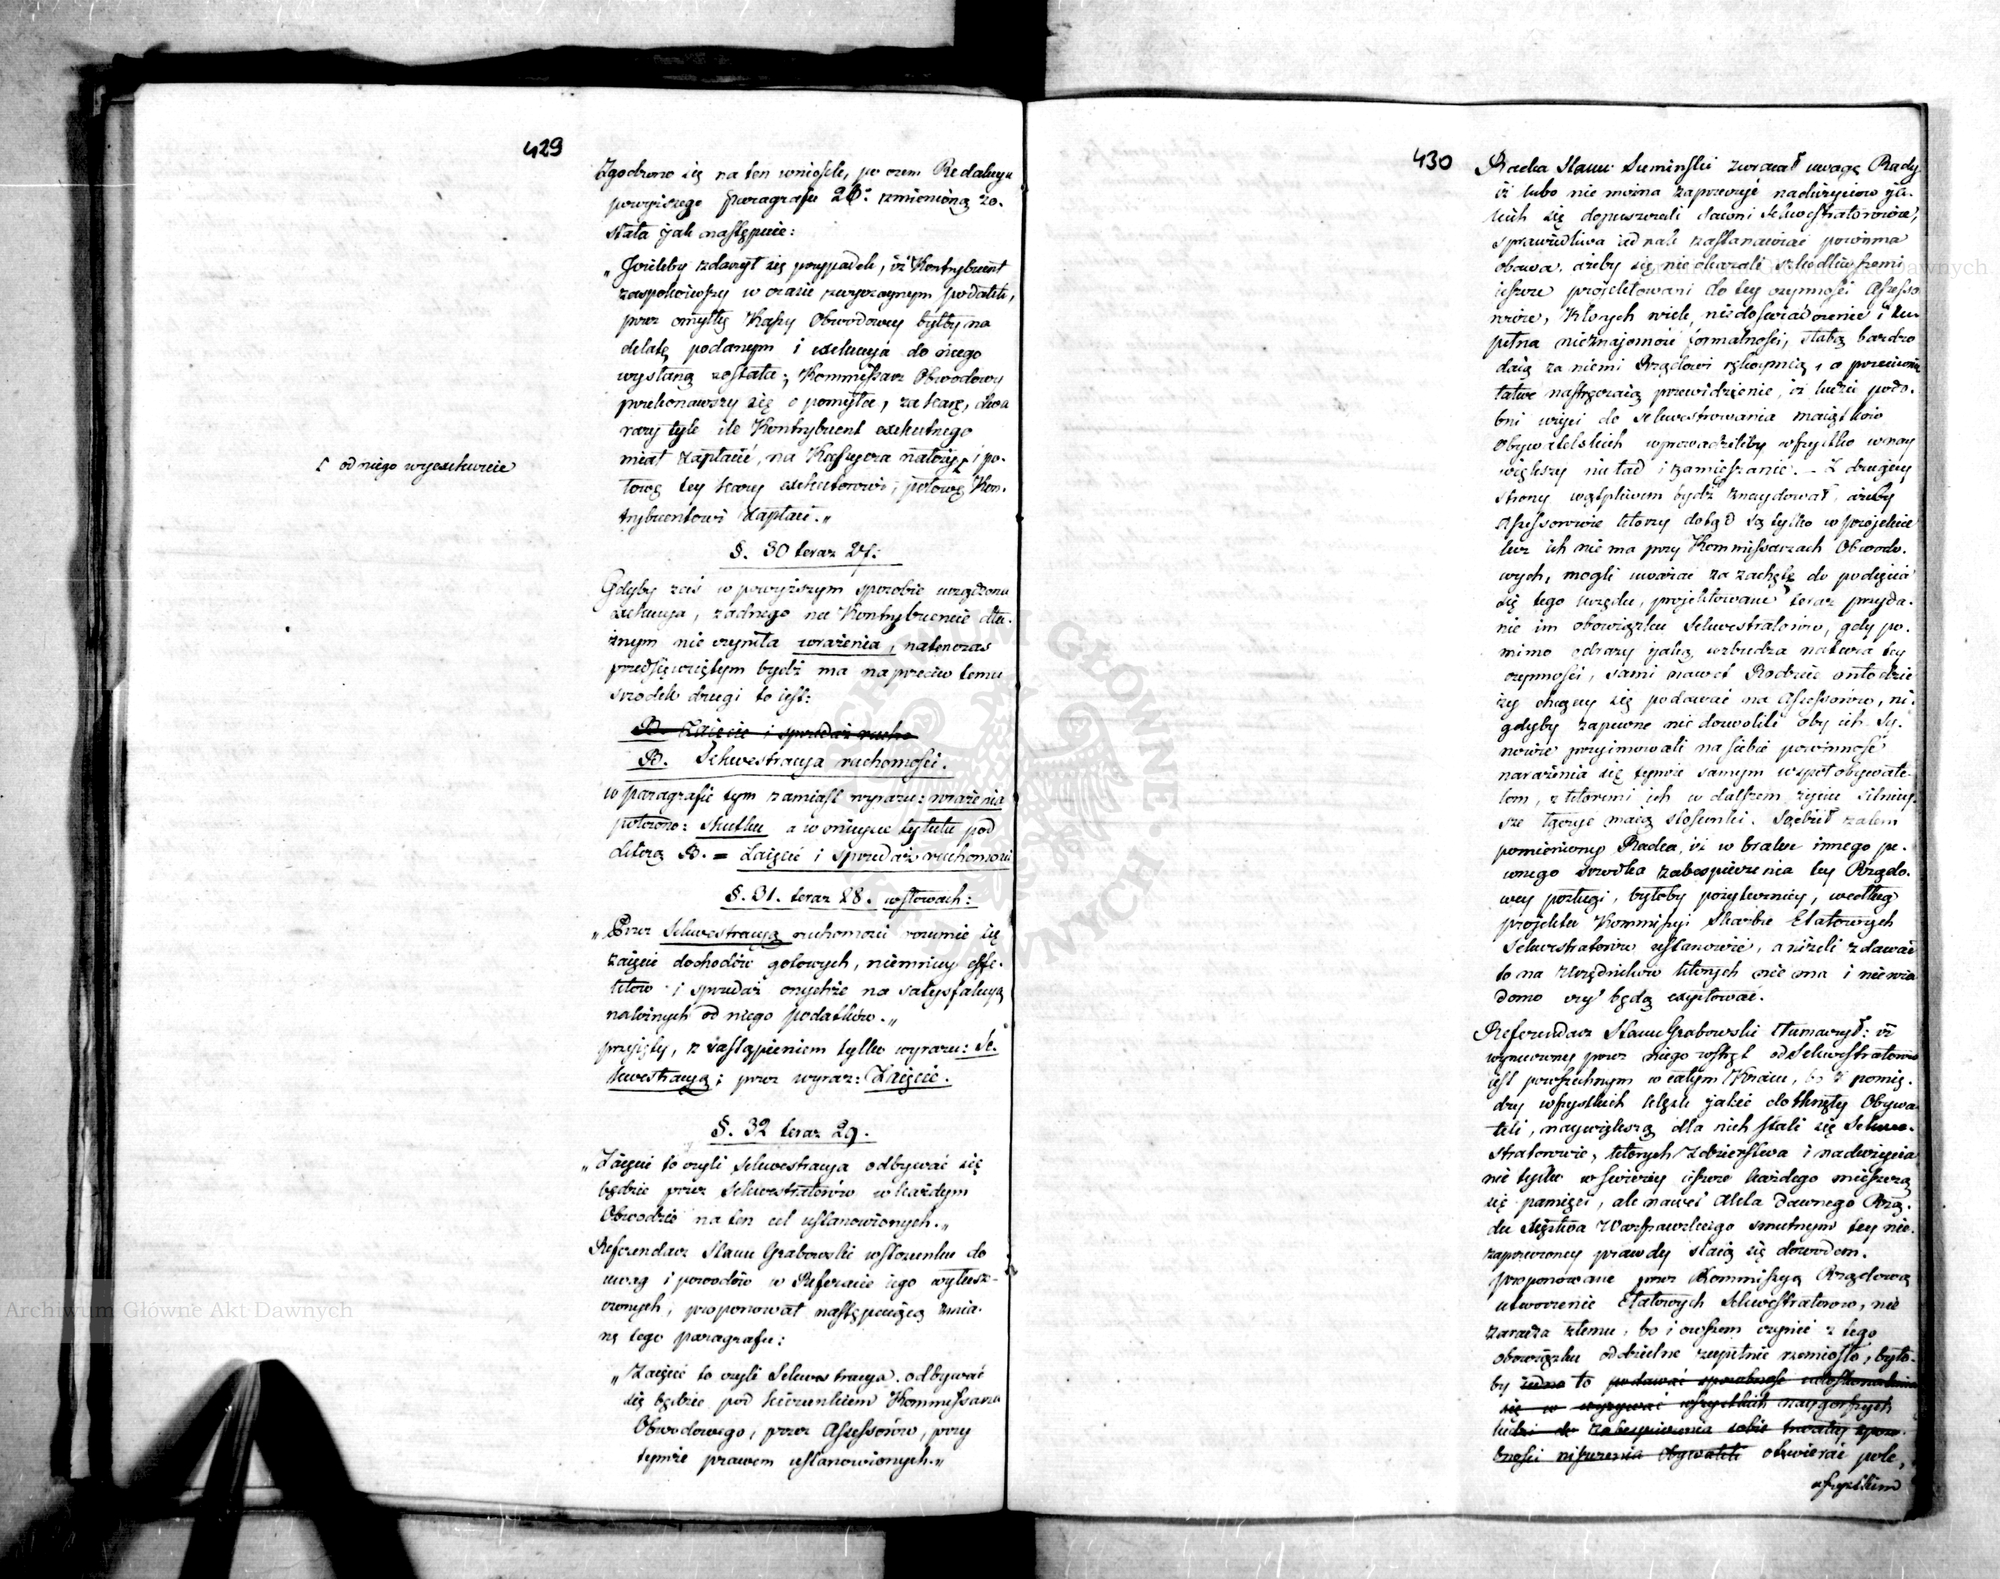 429
Zgodzono się na ten wniosek, po czem Redakcya
powyższego Paragrafu 26: zmienioną zo-
stała jak następuie:
„Jeżeliby zdarzył się przypadek, iż Kontrybuent
zaspokoiwszy w czasie zwyczaynym podatek,
przez omyłkę Kassy Obwodowey byłby na
delatę podanym i exekucya do niego
wysłaną została; Kommissarz Obwodowy
przekonawszy się o pomyłce, za karę, dwa
razy tyle ile Kontrybuent exekutnego
miał zapłacić, na Kassyera nałoży [ i po-
łowę tey kary exekutorowi, połowę Kon-
trybuentowi zapłaci.„
[ od niego wyexekwuie
§. 30 teraz 27:
Gdyby zaś w powyższym sposobie urządzona
exekucya, żadnego na Kontrybuencie dłu-
żnym nie czyniła wrażenia, natenczas
przedsięwziętym bydź ma naprzeciw temu
środek drugi to iest:
B. Zaięcie i sprzedaż rucho
B. Sekwestracya ruchomości.
w paragrafie tym zamiast wyrazu: wrażenia
położono: skutku a w mieysce tytułu pod
Literą B. = Zaięcie i sprzedaż ruchomości
§. 31. teraz 28. w słowach:
„Przez Sekwestracyą ruchomości rozumie się
zaięcie dochodów gotowych, niemniey effe-
któw i sprzedaż onychże na satysfakcyą
należnych od niego podatków.„
przyięty, z zastąpieniem tylko wyrazu: Se-
kwestracyą; przez wyraz: Zaięcie.
§. 32 teraz 29.
„Zaięcie to czyli Sekwestracya odbywać się
będzie przez Sekwestratorów w każdym
Obwodzie na ten cel ustanowionych.„
Referendarz Stanu Grabowski w stosunku do
uwag i powodów w Referacie iego wyłusz-
czonych, proponował następuiącą zmia-
nę tego paragrafu:
„Zaięcie to czyli Sekwestracya odbywać
się będzie pod kierunkiem Kommissarza
Obwodowego, przez Assessorów, przy
tymże prawem ustanowionych.„
430
Radca Stanu Sumiński zwracał uwagę Rady
iż lubo nie można zaprzeczyć nadużyciów ja-
kich się dopuszczali dawni Sekwestratorowie,
sprawiedliwa iednak zastanawiać powinna
obawa, ażeby się nie okazali szkodliwszemi
ieszcze projektowani do tey czynności Assesso-
rowie, których wiek, niedoświadczenie i zu-
pełna nieznajomość formalności, słabą bardzo
daią za niemi Rządowi rękoymią, a przeciwnie
łatwe nastręczaią przewidzenie, iż ludzie podo-
bni wzięci do sekwestrowania maiątków
Obywatelskich wprowadziliby wszystko w nay
większy nieład i zamieszanie. – Z drugiey
strony wątpliwem bydź znaydował, ażeby
Assessorowie którzy dotąd są tylko w projekcie
lecz ich nie ma przy Kommissarzach Obwodo-
wych, mogli uważać za zachętę do podięcia
się tego urzędu, projektowane teraz przyda-
nie im obowiązku Sekwestratorów, gdy po-
mimo odrazy jaką wzbudza natura tey
czynności, sami nawet Rodzice młodzie
ży chcącey się podawać na Assessorów, ni-
gdyby zapewne nie dozwolili aby ich Sy-
nowie przyjmowali na siebie powinność
narażenia się tymże samym współobywate-
lom, z któremi ich w dalszem życiu silniey-
sze łączyć maią stosunki. Sądził zatem
pomieniony Radca, iż w braku innego pe-
wnego środka zabespieczenia tey Rządo-
wey posługi, byłoby pożyteczniey, według
projektu Kommissyi Skarbu Etatowych
Sekwestratorów ustanowić, aniżeli zdawać
to na Urzędników których nie ma i niewia-
domo czy będą exystować.
Referendarz Stanu Grabowski tłumaczył: iż
wynurzony przez niego wstręt od Sekwestratorów
iest powszechnym w całym Kraiu, bo z pomię-
dzy wszystkich klęsk jakie dotknęły Obywa-
teli, naywiększą dla nich stali się Sekwe-
stratorowie, których zdzierstwa i nadużycia
nie tylko w świeżey ieszcze każdego mieszczą
się pamięci, ale nawet Akta dawnego Rzą-
du Xięstwa Warszawskiego smutnym tey nie-
zaprzeczoney prawdy staią się dowodem.
proponowane przez Kommissyą Rządową
utworzenie Etatowych Sekwestratorów, nie
zaradza złemu, bo i owszem czynić z tego
obowiązku oddzielne zupełnie rzemiosło, było-
by iedno to podawać sposobność udoskonalenia
się w wyzywać wszystkich naygorszych
ludzi do zabespieczenia sobie trwałey sposo-
bności niszczenia Obywateli otwierać pole,
wszystkim